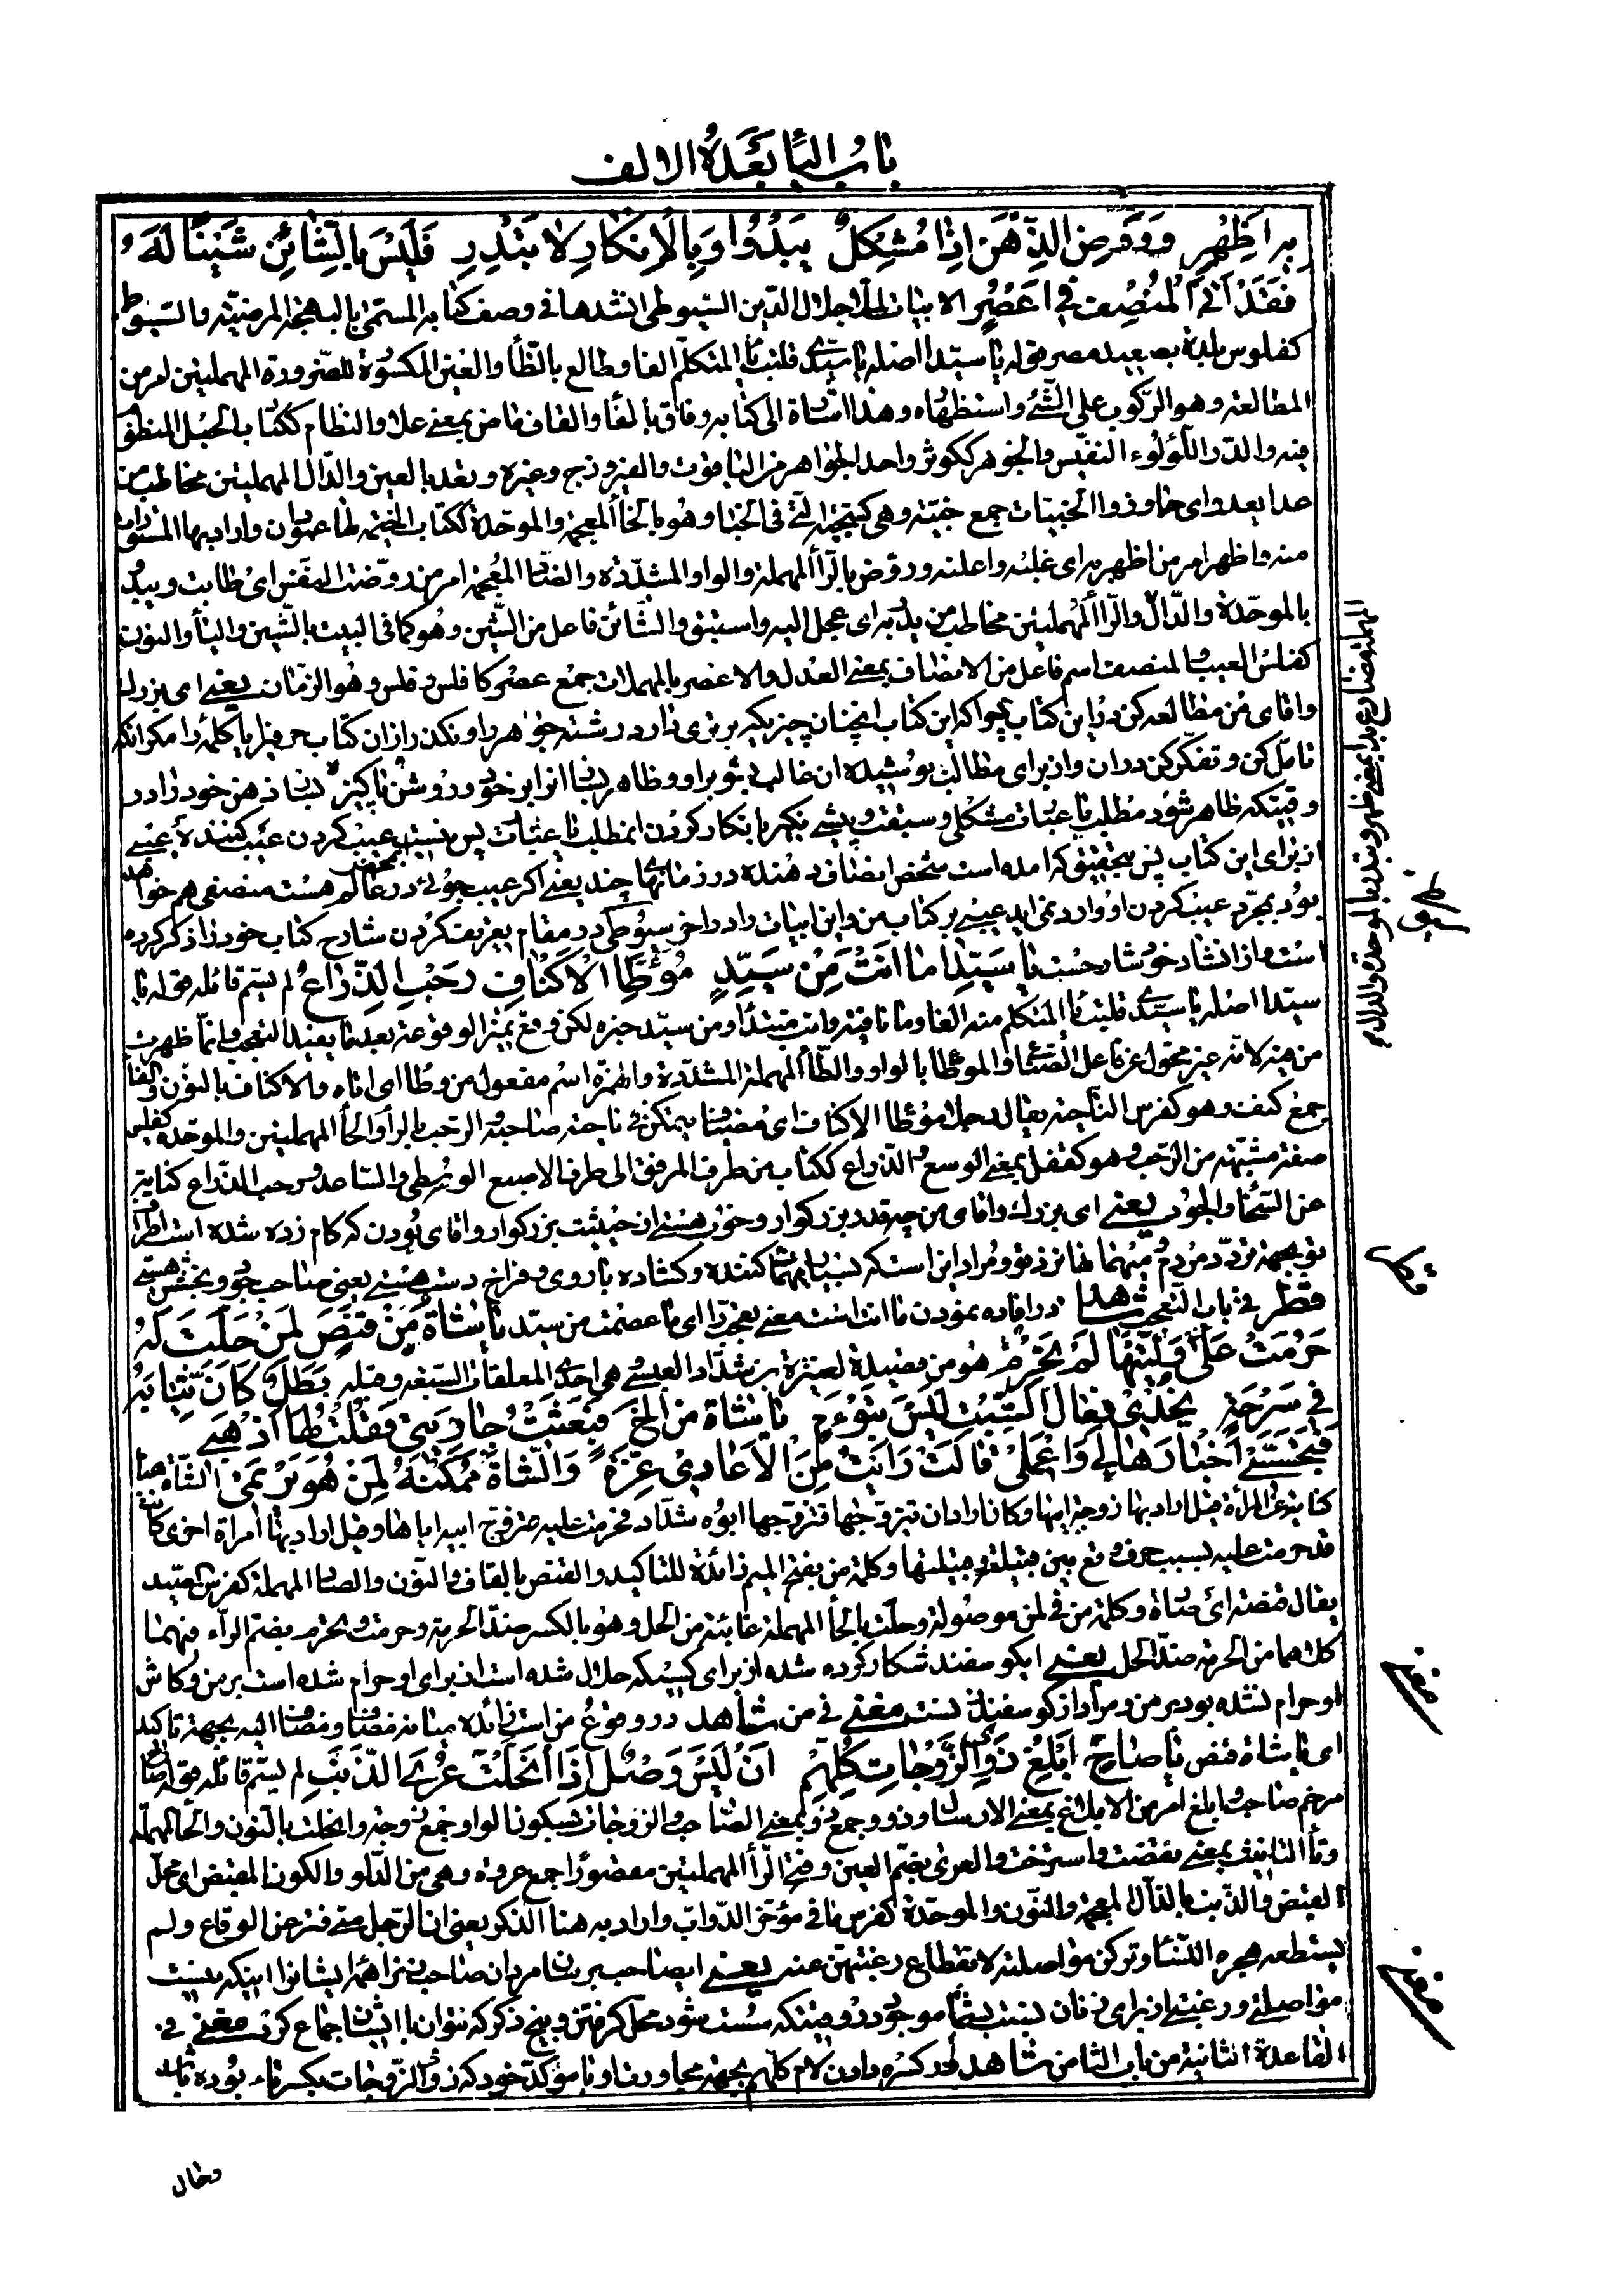 باب الیاء بعده الالف
به اظهر وروّض الذّهن اذا مشكلٌ يبدُو وبالانكار لا تبتدِر فليس بالشّائن شيئًا لهُ
فقد اتى المنصف في اعصُر الابيات لملّا جلال الدّين السّيوطى انشدها فى وصف كتابه المسمّى بالبهجة المرضيّة والسّيوط
كفلوس بلدة بصعيد مصر قوله يا سيّدا اصله يا سيّدى قلبت ياء المتكلّم الفا وطالع بالطّاء والعين المكسورة للضّرورة المهملتين امر من
المطالعة وهو الرّكوب على الشّئ واستظهاره وهذا اشارة الى كتابه وفاق بالفاء والقاف ماض بمعنى علا والنظام ككتاب الحبل المنظوم
فيه والدّر اللّؤلوء النفيس والجوهر ككوثر واحد الجواهر من الياقوت والفيروزج وغيره وتعد بالعين والدّال المهملتين مخاطب من
عدا يعدو اى جاوز والخبيئات جمع خبيئة وهى كنتيجة الّتى فى الخباء وهو بالخاء المعجمة والموحّدة ككتاب الخيمة لها عمودان واراد بها المستورات
منه واظهر امر من اظهر به اى غلبه واعلنه وروّض بالرّاء المهملة والواو المشدّدة والضّاد المعجمة امر من روّضت النفس اى طابت ويبدو
بالموحّدة والدّال والرّاء المهملتين مخاطب من بدر به اى عجل اليه واستبق والشّائن فاعل من الشّين وهو كما فى البيت بالشّين والياء والنون
كفلس العيب والمنصف اسم فاعل من الانصاف بمعنى العدل والاعصر بالمهملات جمع عصر كافلس وفلس وهو الزمان يعنى اى بزرك
واقاى من مطالعه كن در اين كتاب چراكه اين كتاب انچنان چيزيكه برترى دارد رشته جواهر را ونكذر از ان كتاب حرفيرا يا كلمهٔ را مكر انكه
تامّل كن وتفكّر كن دران واز براى مطالب پوشيده ان غالب شو براو وظاهر بنما انرا بر خود وروشن وپاكيزه بنما ذهن خود را در
وقيتكه ظاهر شود مطلب يا عبارت مشكلى وسبقت وپيشى نكير بانكار كردن انمطلب يا عبارت پس نيست عيب كردن عيب كننده عيبى
از براى اين كتاب پس بتحقيق كه امده است شخص انصاف دهنده در زمانهاى چند يعنى اكر عيب جوئى در عالم هست منصفى هم خواهد
بود بمجرّد عيب كردن او وارد نمى ايد عيبى بر كتاب من واين ابيات را در اخر سيوطى در مقام تعريف كردن شارح كتاب خود را ذكر كرده
است واز انشاد خود شارحست يا سيّدا ما انت من سيّدٍ موطّأ الاكناف رحب الذّراع لم يسمّ قائله قوله يا
سيّدا اصله يا سيّدى قلبت ياء المتكلّم منه الفا وما نافية وانت مبتدأ ومن سيّد خبره لكن وقع تميزا لوقوعه بعد ما يفيد التعجّب وانّما ظهرت
من فيه لانّه غير محوّل عن فاعل الصّناعة والموطّا بالواو والطّاء المهملة المشدّدة والهمزة اسم مفعول من وطّا اى اناه والاكناف بالنون والفاء
جمع كنف وهو كفرس النّاحية يقال رجل موطّا الاكناف اى مضياف يتمكّن فى ناحيته صاحبه والرّحب بالراء والحاء المهملتين والموحّدة كفلس
صفة مشبّهة من الرّحب وهو كقفل بمعنى الوسع والذّراع ككتاب من طرف المرفق الى طرف الاصبع الوسطى والسّاعد ورحب الذّراع كناية
عن السّخاء والجود يعنى اى بزرك واقاى من چه قدر بزركوار وخوب هستى از حيثيت بزركوار واقاى بودن كه كام زده شده است اطراف
تو بجهة تردّد مردم ومهمانها نزد تو ومراد اين است كه بسيار مهمانى كننده وكشاده باروى وفراخ دست هستى يعنى صاحب جود وبخشش هستى
قطر فى باب التعجّب شاهد در افاده نمودن ما انت است معنى تعجّب را اى ما عضمت من سيّد يا شاة من قنص لمن حلّت له
حرمت علىّ وليتها لم تحرم هو من قصيدة لعنترة بن شدّاد العبسى وهى احدى المعلّقات السّبعة وقبله بطل كأنّ ثيابه
فى سرحة يحذى نعال السّبت ليس بتوءم يا شاة من الخ فبعثت جاريتى فقلت لها اذهبى
فتجسّسى اخبارها لى واعلمى قالت رايت من الاعادى غرّة والشّاة ممكنة لمن هو يرتمى الشّاة هنا
كناية عن المرأة قيل اراد بها زوجة ابيها وكان اراد ان يتزوّجها فتزوّجها ابوه شدّاد فحرمت عليه من تزوّج ابيه اياها وقيل اراد بها امراة اخرى كانت
قد حرمت عليه بسبب حرب وقع بين قبيلته وقبيلتها وكلمة من بفتح الميم زائدة للتاكيد والقنص بالقاف والنون والصاد المهملة كفرس الصّيد
يقال قنصه اى صاده وكلمة من فى لمن موصولة وحلّت بالحاء المهملة غائبة من الحل وهو بالكسر ضدّ الحرمة وحرمت وتحرم بضم الرّاء فيهما
كلاهما من الحرمة ضدّ الحل يعنى ايكوسفند شكار كرده شده از براى كسيكه حلال شده است از براى او حرام شده است بر من وكاش
او حرام نشده بود بر من ومراد از كوسفند زنست مغنى فى من شاهد در وقوع من است زائده ميانه مضاف ومضاف اليه بجهة تاكيد
اى يا شاة قنص يا صاح بلّغ ذوى الزّوجات كلّهم ان ليس وصل اذا انحلّت عرى الذّنب لم يسمّ قائله قوله صاح
مرخم صاحب وابلغ امر من الابلاغ بمعنى الارسال وذوو جمع ذو بمعنى الصّاحب والزوجات بسكون الواو جمع زوجة وانحلت بالنون والحاء المهملة
وتاء التانيث بمعنى نقضت واسترخت والعرى بضم العين وفتح الرّاء المهملتين مقصورا جمع عروة وهى من الدّلو والكوز المقبض اى محلّ
القبض والذّنب بالذال المعجمة والنّون والموحّدة كفرس ما فى مؤخّر الدّواب واراد به هنا الذّكر يعنى ان الرّجل متى فتر عن الوقاع ولم
يستطعه هجره النّساء وتركن مواصلته لانقطاع رغبتهنّ عنه يعنى ايصاحب برسان مردان صاحب زنرا همهٔ ايشانرا اينكه نيست
مواصلتى ورغبتى از براى زنان نسبت بشما موجود در وقتيكه سست شود محلّ كرفتن وبيخ ذكر كه نتوان با ايشان جماع كرد مغنى فى
القاعدة الثّانية من باب الثّامن شاهد در كسره دادن لام كلّهم بجهة مجاورت او با مؤكّد خود كه ذوى الزّوجات بكسر تاء بوده باشد
سيوطى
قطر
مغنى
مغنى
وحال